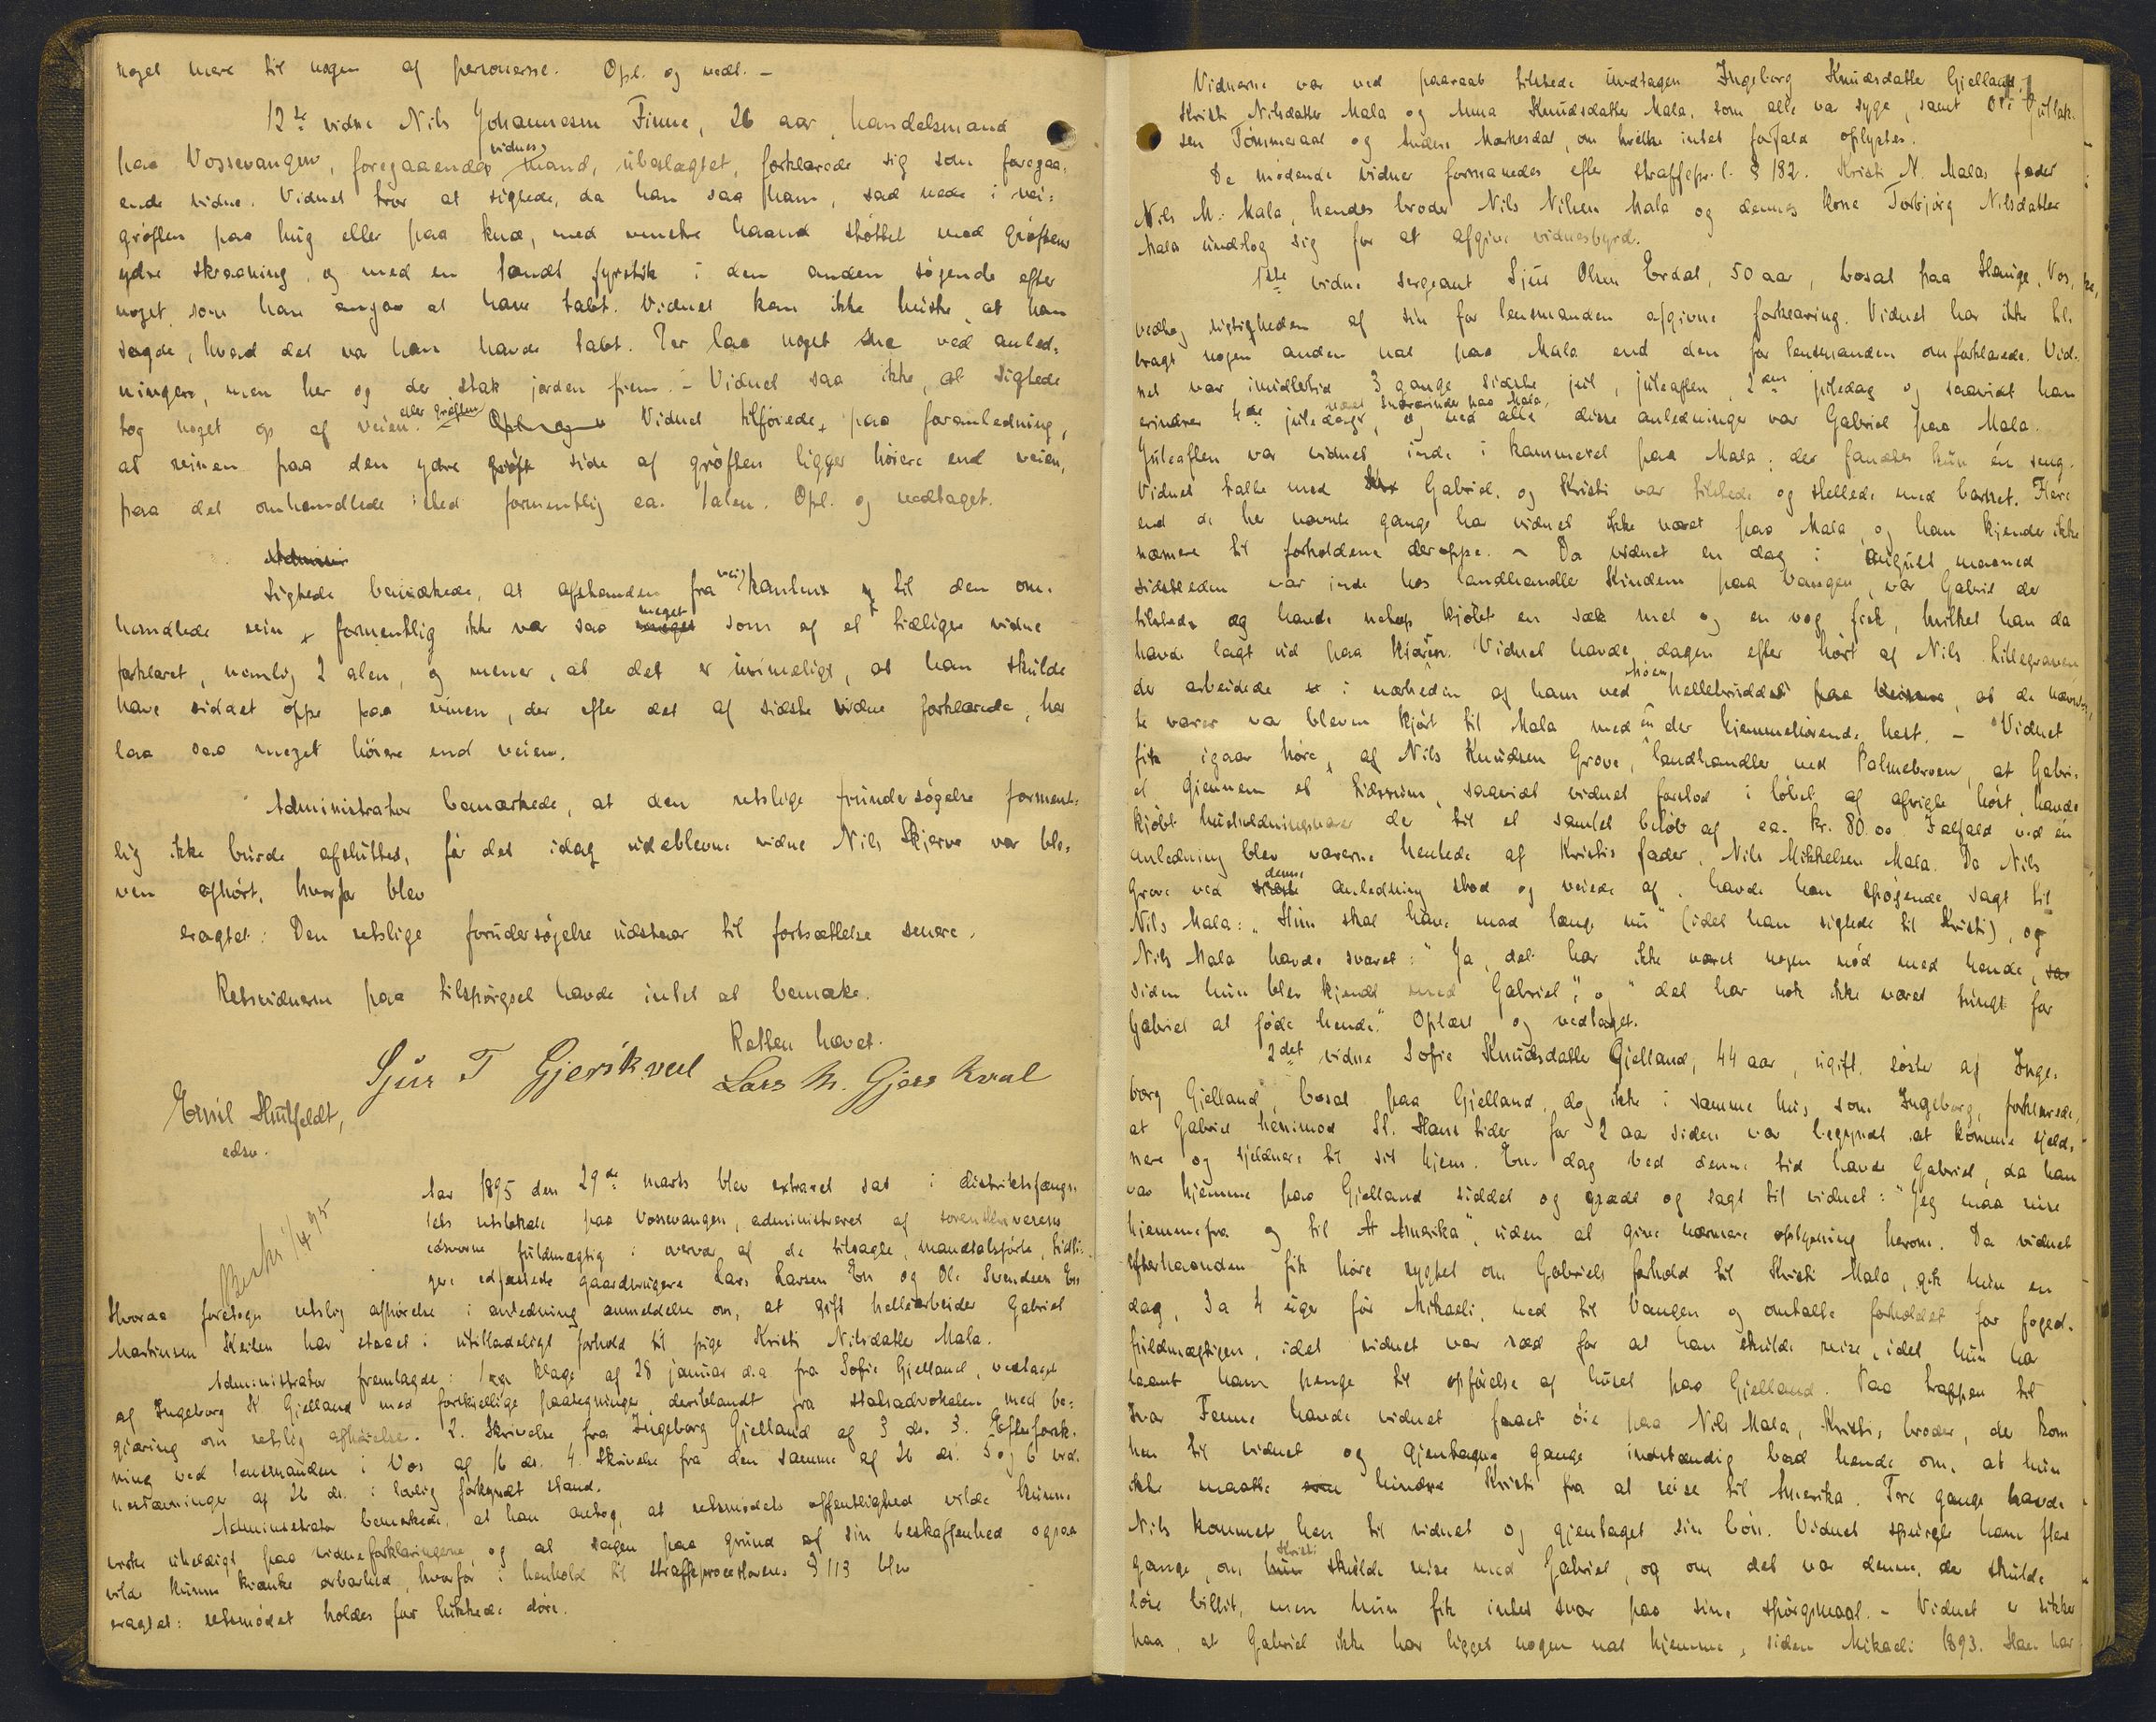 noget mere til nogen af personerne. Opl. og vedt. –
12te vidne Nils Johannesen Finne, 26 aar, handelsmand
paa Vossevangen, foregaaende vidnes mand, ubeslægtet, forklarede sig som foregaa-
ende vidne. Vidnet tror at sigtede, da han saa ham, sad nede i vei-
grøften paa hug eller paa knæ, med venstre haand støttet mod grøftens
ydre skraaning, og med en tændt fyrstik i den anden søgende efter
noget, som han angav at have tabt. Vidnet kan ikke huske, at han
sagde, hvad det var han havde tabt. Der laa noget sne ved anled-
ningen, men her og der stak jorden frem. – Vidnet saa ikke, at sigtede
tog noget op af veien eller grøften. Opl. og v Vidnet tilføiede, paa foranledning,
at reinen paa den ydre grøft side af grøften ligger høiere end veien,
paa det omhandlede sted formentlig ca. 1 alen. Opl. og vedtaget.
Administ
Sigtede bemærkede, at afstanden fra veikanten til den om-
handlede rein formentlig ikke var saa meget som af et tidligere vidne
forklaret, nemlig 2 alen, og mener, at det er urimeligt, at han skulde
have siddet oppe paa reinen, der efter det af sidste vidne forklarede, har
laa saa meget høiere end veien.
Administrator bemærkede, at den retslige forundersøgelse forment-
lig ikke burde afsluttes, før det idag udeblevne vidne Nils Skjerve var ble-
ven afhørt, hvorfor blev
eragtet: Den retslige forundersøgelse udstaar til fortsættelse senere.
Retsvidnerne paa tilspørgsel havde intet at bemærke.
Retten hævet.
Sjur T Gjerskval Lars N. Gjerskval
Emil Huitfeldt,
edsv.
Besk. 1/4 95
Aar 1895 den 29de marts blev extraret sat i distriktsfængs-
lets retslokale paa Vossevangen, administreret af sorenskriverens
edsvorne fuldmægtig i overvær af de tilsagte, mandtalsførte, tidli-
gere edfæstede gaardbrugere Lars Larsen En og Ole Svendsen En
Hvoraa foretoges retslig afhørelse i anledning anmeldelse om, at gift hellearbeider Gabriel
Martinsen Keilen har staaet i utilladeligt forhold til pige Kristi Nilsdatter Mala.
Administrator fremlagde: 1. klage af 28 januar d.a. fra Sofie Gjelland, vedtaget
af Ingeborg K Gjelland med forskjellige paategninger, deriblandt fra statsadvokaten med be-
gjæring om retslig afhørelse. 2. Skrivelse fra Ingeborg Gjelland af 3 ds. 3. Efterforsk-
ning ved lensmanden i Vos af 16 ds. 4. Skrivelse fra den samme af 26 ds. 5 og 6 vid-
nestævninger af 26 ds. i lovlig forkyndt stand.
Administrator bemærkede, at han antog, at retsmødets offentlighed vilde kunne
virke uheldigt paa vidneforklaringerne, og at sagen paa grund af sin beskaffenhed ogsaa
vilde kunne krænke ærbarhed, hvorfor i henhold til straffeproceslovens § 113 blev
eragtet: retsmødet holdes for lukkede døre.
Vidnerne var ved paaraab tilstede undtagen Ingeborg Knudsdatter Gjelland,
Kristi Nilsdatter Mala og Anna Knudsdatter Mala, som alle var syge, samt Ole Gullak-
sen Tømmeraas og Anders Mørkesdal, om hvilke intet forfald oplystes.
De mødende vidner formanedes efter straffepr. l. § 182. Kristi N. Malas fader
Nils M. Mala, hendes broder Nils Nilsen Mala og dennes kone Torbjørg Nilsdatter
Mala undslog sig for at afgive vidnesbyrd.
1ste vidne sergeant Sjur Olsen Erdal, 50 aar, bosat paa Hauge, Vos,
vedtog rigtigheden af sin for lensmanden afgivne forklaring. Vidnet har ikke til-
bragt nogen anden nat paa Mala end den for lensmanden omforklarede. Vid-
net var imidlertid 3 gange sidste jul, juleaften, 2den juledag og saavidt han
erindrer 4de juledag, været paa Mala, og ved alle disse anledninger var Gabriel paa Mala.
Juleaften var vidnet inde i kammeret paa Mala; der fandtes kun én seng.
Vidnet talte med Gabriel, og Kristi var tilstede og stellede med barnet. Flere
end de her nævnte gange har vidnet ikke været paa Mala, og han kjender ikke
nærmere til forholdene deroppe. – Da vidnet en dag i august maaned
sidstleden var inde hos landhandler Kindem paa Vangen, var Gabriel der
tilstede og havde netop kjøbt en sæk mel og en vog fisk, hvilket han da
havde lagt ud paa kjærren. Vidnet havde dagen efter hørt af Nils Lillegraven,
der arbeidede i nærheden af ham ved hellebruddet, at de nævn-
te varer var bleven kjørt til Mala med en der hjemmehørende hest. – Vidnet
fik igaar høre, af Nils Knudsen Grove, landhandler ved Palmebroen, at Gabri-
el gjennem et tidsrum, saavidt vidnet forstod i løbet af afvigte høst, havde
kjøbt husholdningsvarer der til et samlet beløb af ca. kr. 80.00. Ialfald ved én
anledning blev varerne hentede af Kristis fader, Nils Mikkelsen Mala. Da Nils
Grove ved denne anledning stod og veiede af, havde han spøgende sagt til
Nils Mala: „Hun skal have mad længe nu" (idet han sigtede til Kristi), og
Nils Mala havde svaret: "Ja, det har ikke været nogen nød med hende,
siden hun blev kjendt med Gabriel", og "det har nok ikke været tungt for
Gabriel at føde hende." Oplæst og vedtaget.
2det vidne Sofie Knudsdatter Gjelland, 44 aar, ugift, søster af Inge-
borg Gjelland, bosat paa Gjelland, dog ikke i samme hus, som Ingeborg, forklarede,
at Gabriel henimod St. Hans tider for 2 aar siden var begyndt at komme sjeld-
nere og sjeldnere til sit hjem. En dag ved denne tid havde Gabriel, da han
var hjemme paa Gjelland siddet og grædt og sagt til vidnet: "Jeg maa reise
hjemmefra og til Amerika", uden at give nærmere oplysning herom. Da vidnet
efterhaanden fik høre rygtet om Gabriels forhold til Kristi Mala, gik hun en
dag, 3 a 4 uger før Mikaeli, ned til Vangen og omtalte forholdet for foged-
fuldmægtigen, idet vidnet var ræd for at han skulde reise, idet hun har
laant ham penge til opførelse af huset paa Gjelland. Paa trappen til
Ivar Fenne havde vidnet faaet øie paa Nils Mala, Kristis broder, der kom
hen til vidnet og gjentagne gange indstændig bad hende om, at hun
ikke maatte hindre Kristi fra at reise til Amerika. Tre gange havde
Nils kommet hen til vidnet og gjentaget sin bøn. Vidnet spurgte ham flere
gange, om Kristi skulde reise med Gabriel, og om det var denne, der skulde
løse billet, men hun fik intet svar paa sine spørgsmaal. – Vidnet er sikker
paa, at Gabriel ikke har ligget nogen nat hjemme, siden Mikaeli 1893. Han har